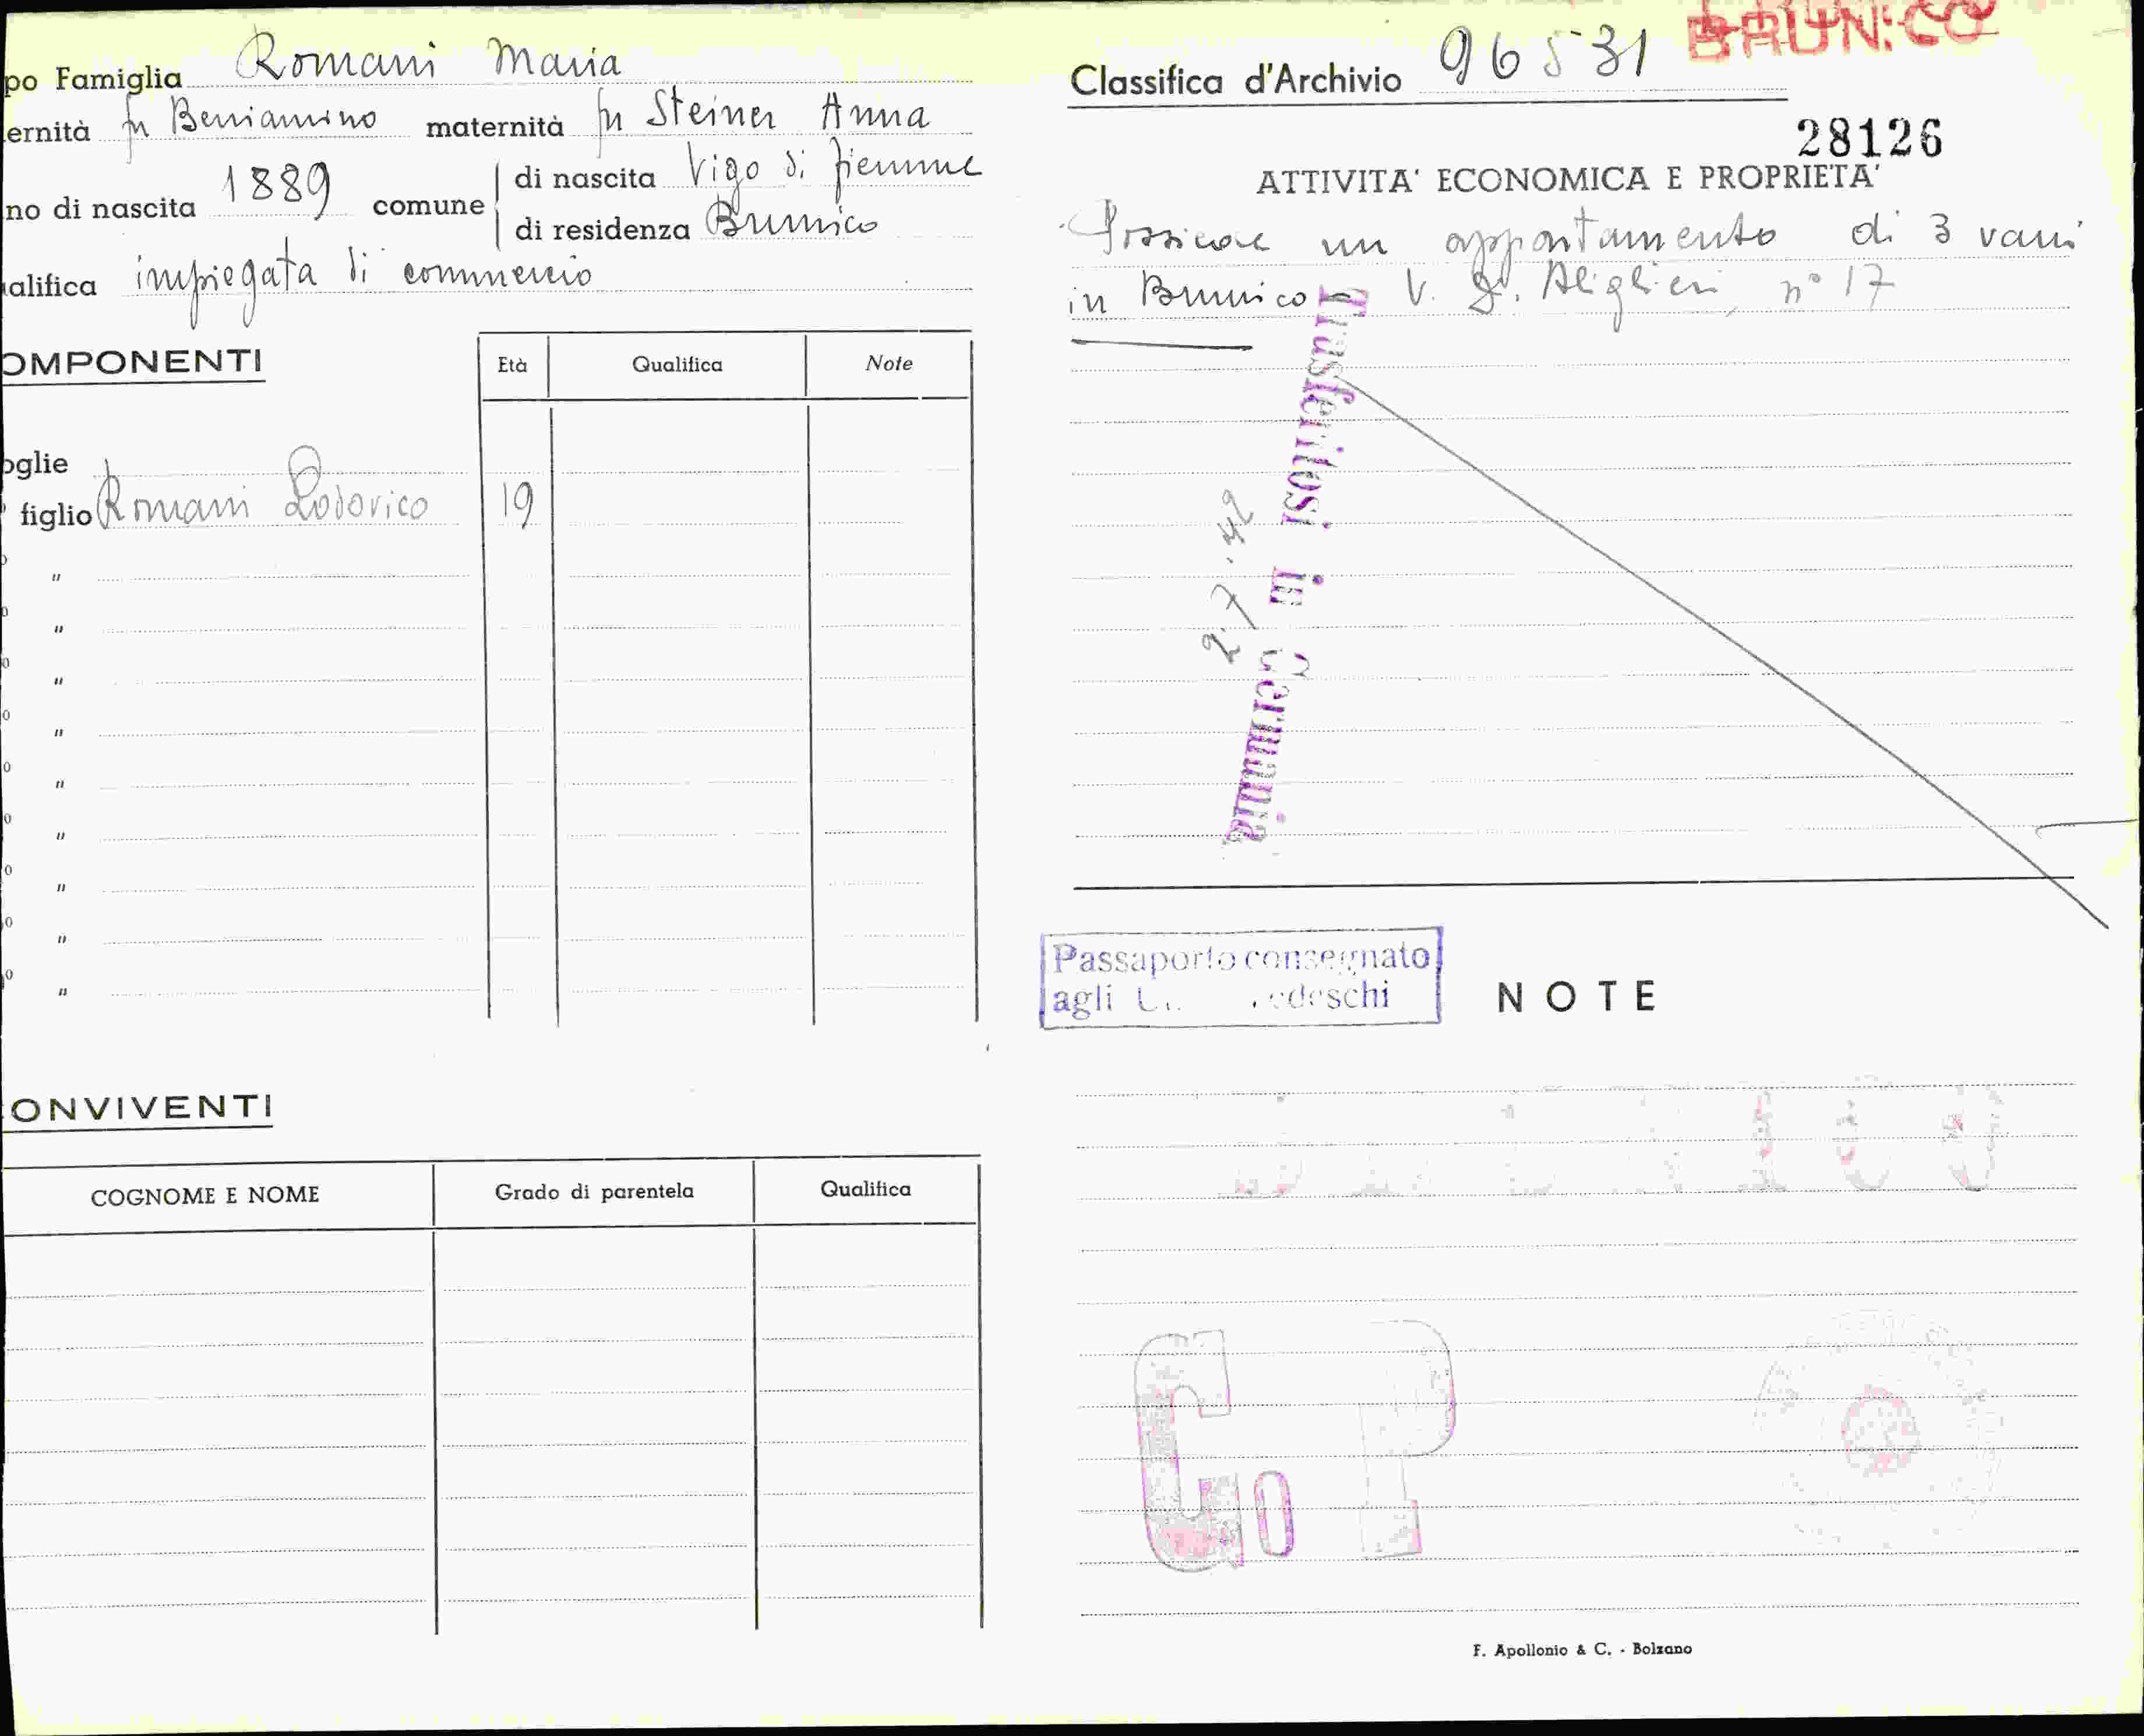 po Famiglia Romani Maria
ernità fu Beniamino maternità fu Steiner Anna
no di nascita 1889 comune di nascita Vigo di fiemme
di residenza Brunico
alifica impiegata di commercio
OMPONENTI
Età Qualifica Note
oglie
figlio Romani Lodovico 19
"
"
"
"
"
"
"
"
"
ONVIVENTI
COGNOME E NOME Grado di parentela Qualifica
BRUNICO
Classifica d'Archivio 96531
28126
ATTIVITA' ECONOMICA E PROPRIETA'
Possiede un appartamento di 3 vani
in Brunico - V. D. Alighieri, n° 17
Trasferitosi in Germania
2.7.42
Passaporto consegnato
agli tedeschi
NOTE
G P
F. Apollonio & C. - Bolzano